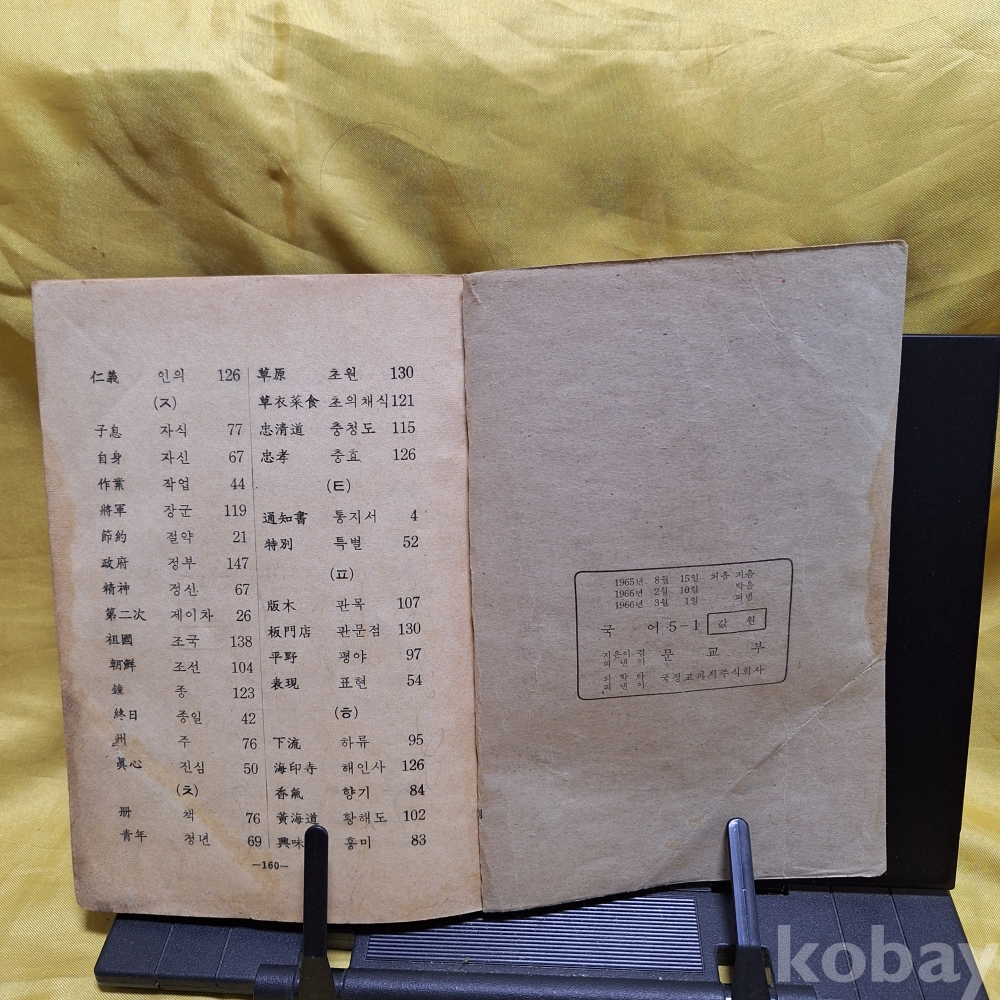 仁義 인의 126
(ㅈ)
子息 자식 77
自身 자신 67
作業 작업 44
將軍 장군 119
節約 절약 21
政府 정부 147
精神 정신 67
第二次 제이차 26
祖國 조국 138
朝鮮 조선 104
鐘 종 123
終日 종일 42
州 주 76
眞心 진심 50
(ㅊ)
册 책 76
靑年 청년 69
草原 초원 130
草衣菜食 초의채식 121
忠淸道 충청도 115
忠孝 충효 126
(ㅌ)
通知書 통지서 4
特別 특별 52
(ㅍ)
版木 판목 107
板門店 판문점 130
平野 평야 97
表現 표현 54
(ㅎ)
下流 하류 95
海印寺 해인사 126
香氣 향기 84
黃海道 황해도 102
興味 흥미 83
—160—
1965년 8월 15일 처음 지음
1966년 2월 10일 박음
1966년 3월 1일 펴냄
국 어 5-1 값 원
지은이 겸 펴낸이 문교부
박아 펴낸이 국정교과서주식회사
kobay